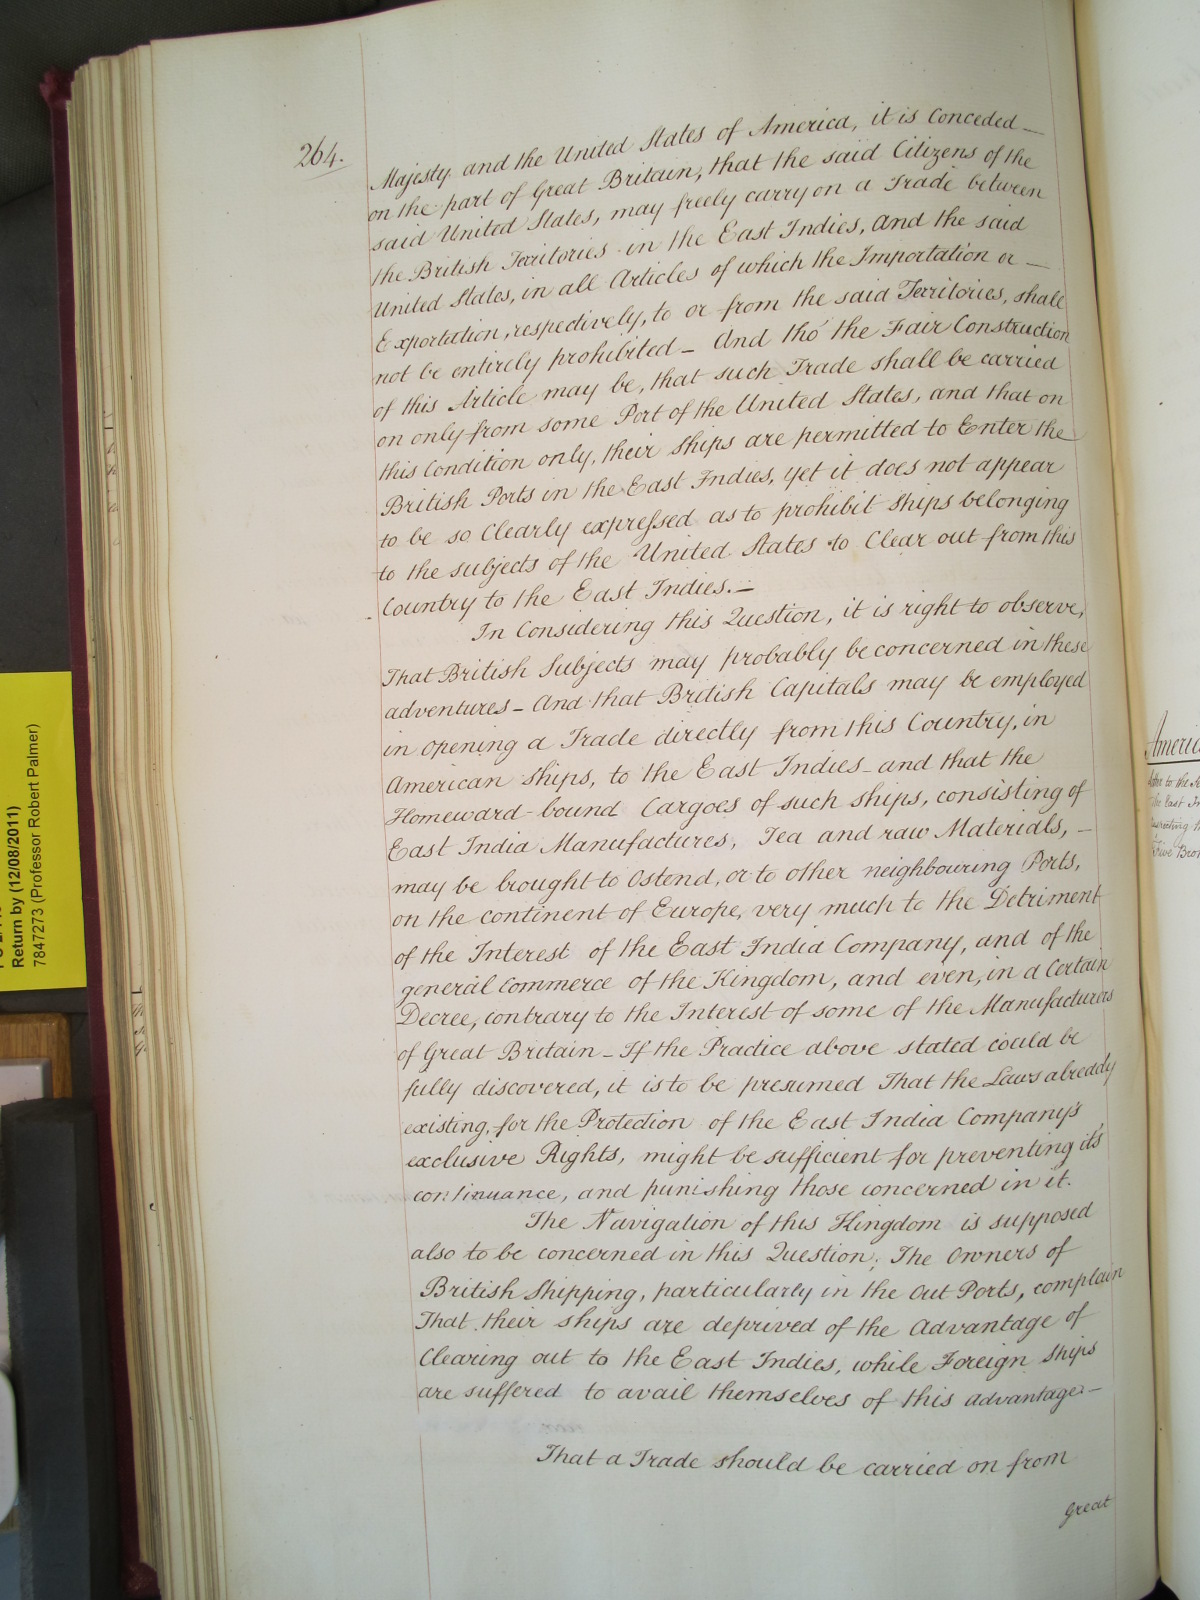 264.
Majesty and the United States of America, it is Conceded —
on the part of Great Britain, that the said Citizens of the
said United States, may freely carry on a Trade between
the British Territories in the East Indies, and the said
United States, in all Articles of which the Importation or —
Exportation, respectively, to or from the said Territories, shall
not be entirely prohibited — And tho' the Fair Construction
of this Article may be, that such Trade shall be carried
on only from some Port of the United States, and that on
this Condition only, their ships are permitted to Enter the
British Ports in the East Indies, yet it does not appear
to be so Clearly expressed as to prohibit ships belonging
to the subjects of the United States to Clear out from this
Country to the East Indies. —
In Considering this Question, it is right to observe,
That British Subjects may probably be concerned in these
adventures — And that British Capitals may be employed
in opening a Trade directly from this Country, in
American ships, to the East Indies — and that the
Homeward-bound Cargoes of such ships, consisting of
East India Manufactures, Tea and raw Materials, —
may be brought to Ostend, or to other neighbouring Ports,
on the continent of Europe, very much to the Detriment
of the Interest of the East India Company, and of the
general Commerce of the Kingdom, and even, in a Certain
Decree, contrary to the Interest of some of the Manufacturers
of Great Britain — If the Practice above stated could be
fully discovered, it is to be presumed That the Laws already
existing, for the Protection of the East India Company's
exclusive Rights, might be sufficient for preventing its
continuance, and punishing those concerned in it.
The Navigation of this Kingdom is supposed
also to be concerned in this Question; The Owners of
British Shipping, particularly in the Out Ports, complain
That their ships are deprived of the Advantage of
Clearing out to the East Indies, while Foreign ships
are suffered to avail themselves of this advantage —
That a Trade should be carried on from
Great
Return by (12/08/2011)
7847273 (Professor Robert Palmer)